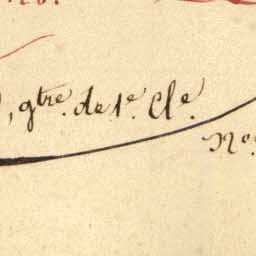 , gtre. de 1e. Cle.
No.